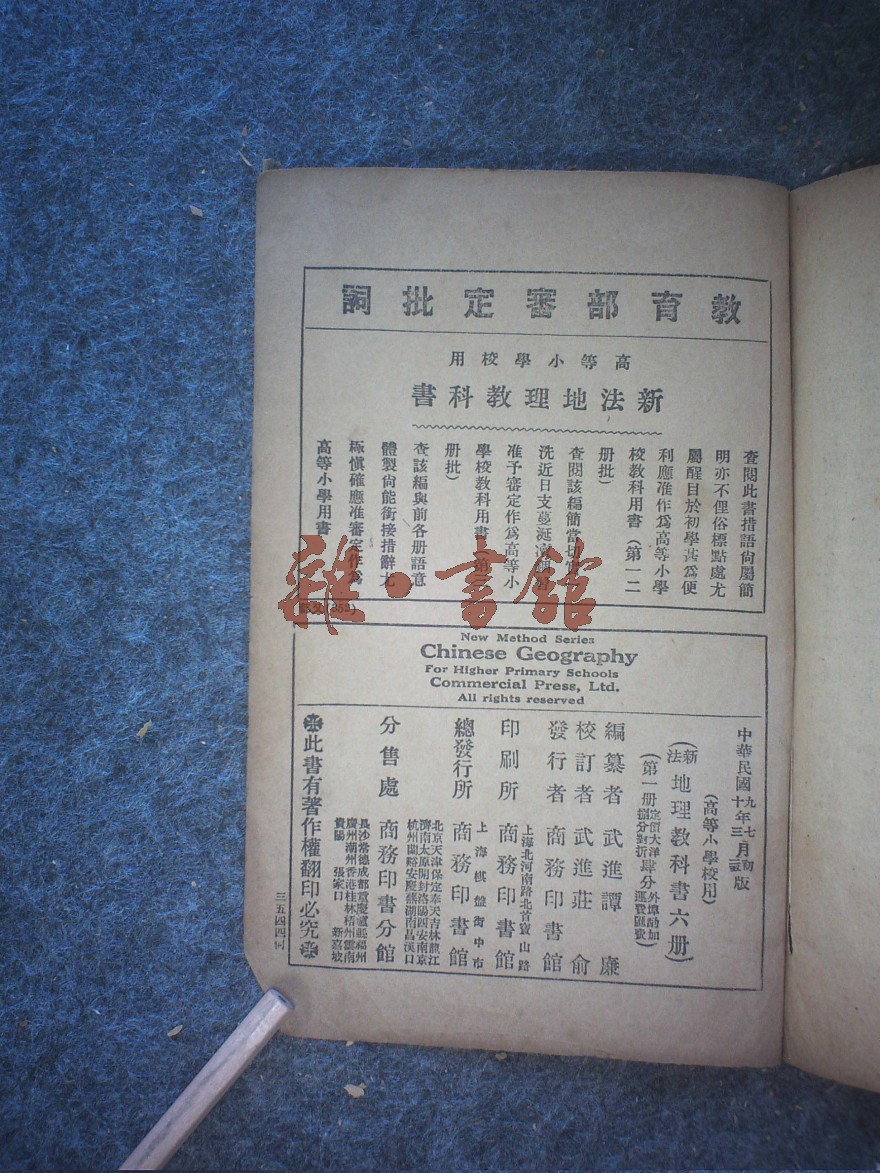 教育部審定批詞
高等小學校用
新法地理教科書
查閱此書措語尙屬簡
明亦不俚俗標點處尤
屬醒目於初學甚爲便
利應准作爲高等小學
校教科用書(第一二
册批)
查閱該編簡當切實
洗近日支蔓涎
准予審定作爲高等小
學校教科用書(第三
册批)
查該編與前各册語意
體製尙能銜接措辭尤
極愼確應准審定作爲
高等小學用書
雜·書館
New Method Series
Chinese Geography
For Higher Primary Schools
Commercial Press, Ltd.
All rights reserved
中華民國九年七月初版
十年三月版
(高等小學校用)
(新法)地理教科書六册)
(第一册定價大洋肆分外埠酌加
捌分對折運費匯費)
編纂者 武進譚廉
校訂者 武進莊俞
發行者 商務印書館
上海北河南路北首寶山路
印刷所 商務印書館
上海棋盤街中市
總發行所 商務印書館
北京天津保定奉天吉林龍江
濟南太原開封洛陽西安南京
杭州蘭谿安慶蕪湖南昌漢口
分售處 商務印書分館
長沙常德成都重慶瀘縣福州
廣州潮州香港桂林梧州雲南
貴陽 張家口 新嘉坡
此書有著作權翻印必究
三五四四